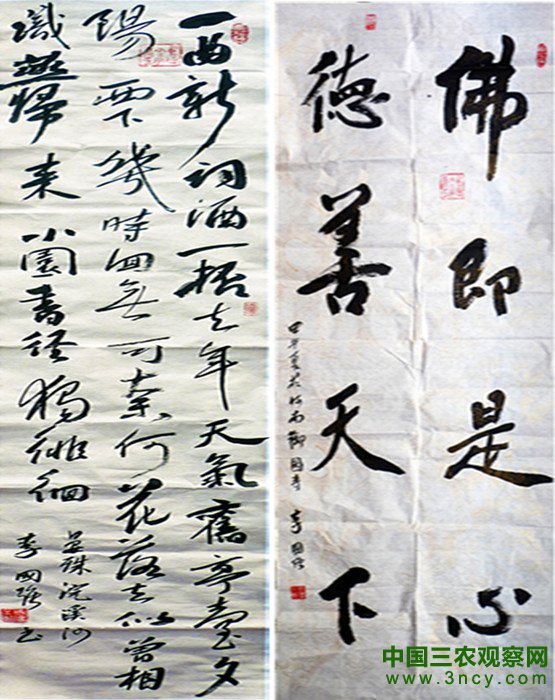 一曲新詞酒一杯去年天氣舊亭臺夕
陽西下幾時回無可奈何花落去似曾相
識燕歸来小園香徑獨徘徊
晏殊浣溪沙
李國强书
佛即是心
德善天下
甲午
李國强
中国三农观察网
www.3ncy.com